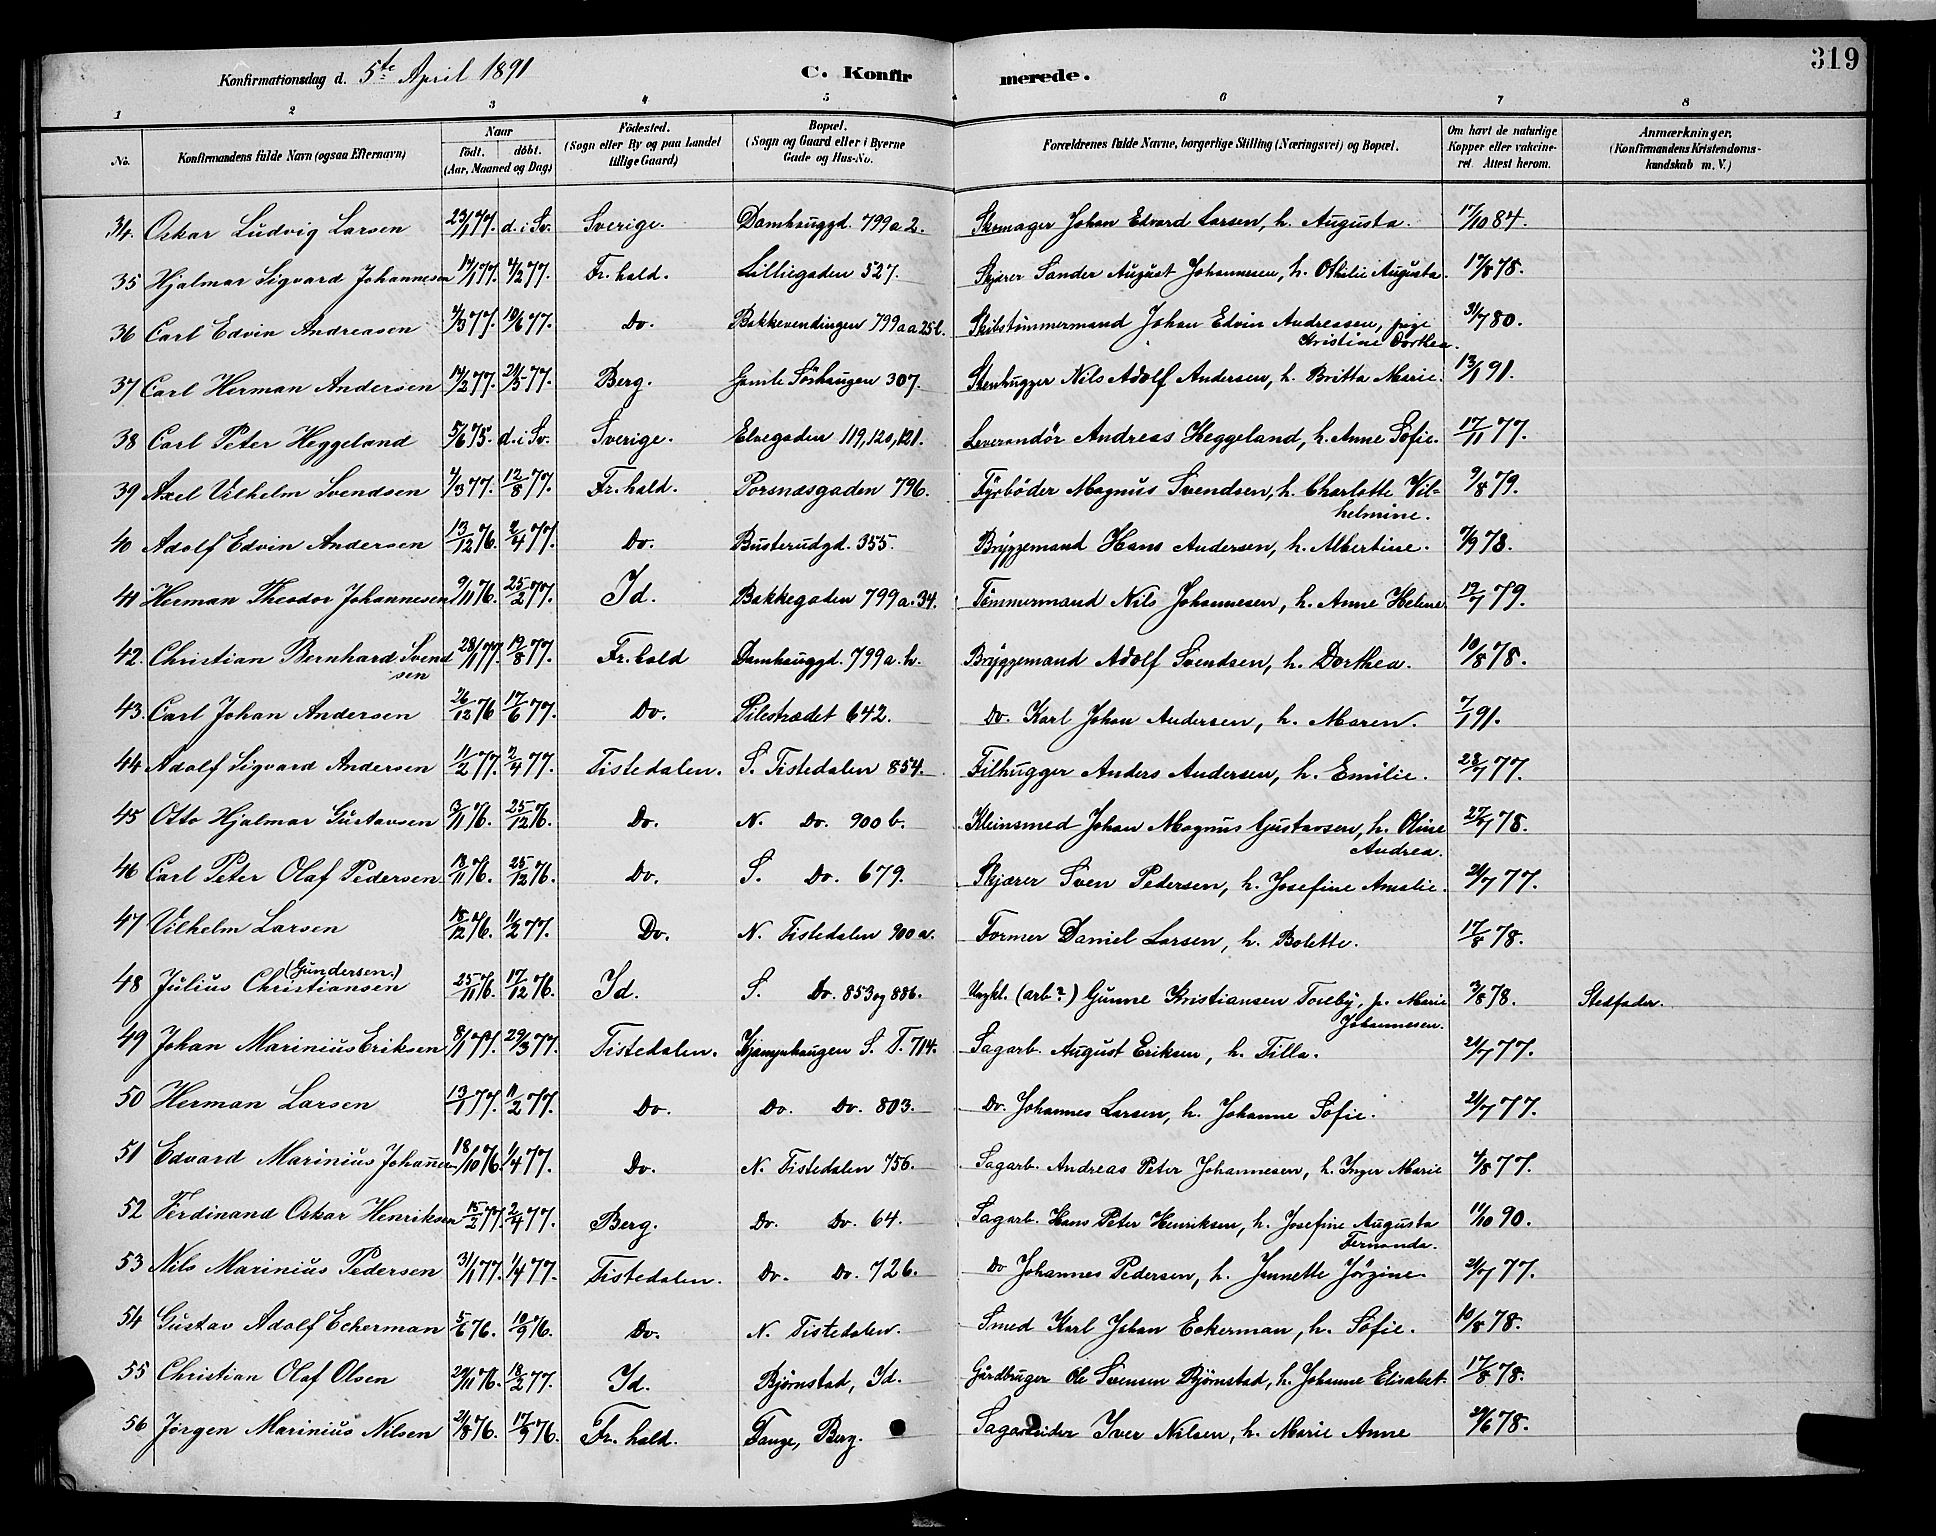 319
Konfirmationsdag d. 5te April 1891 C. Konfirmerede.
1 2 3 4 5 6 7 8
No. Konfirmandens fulde Navn (ogsaa Efternavn) Naar födt. döbt. (Aar, Maaned og Dag) Födested. (Sogn eller By og paa Landet tillige Gaard) Bopæl. (Sogn og Gaard eller i Byerne Gade og Hus-No. Forældrenes fulde Navne, borgerlige Stilling (Næringsvei) og Bopæl. Om havt de naturlige Kopper eller vakcineret. Attest herom. Anmærkninger. (Konfirmandens Kristendomskundskab m. V.)
34. Oskar Ludvig Larsen 23/1 77. d. i Sv. Sverige. Damhauggd. 799 a 2. Skomager Johan Edvard Larsen, h. Augusta. 17/10 84.
35 Hjalmar Sigvard Johannesen 14/1 77. 4/2 77. Fr. hald. Lilliegaden 527. Skjærer Sander August Johannesen, h. Othilie Augusta. 17/8 78.
36 Carl Edvin Andreasen 4/3 77. 10/6 77. Do. Bakkevendingen 799 a a 25 b. Skibstømmermand Johan Edvin Andreasen, pige 31/7 80.
Kristine Dorthea.
37 Carl Herman Andersen 14/2 77. 21/5 77. Berg. Gamle Sörhaugen 307. Stenhugger Nils Adolf Andersen, h. Britta Marie. 13/1 91.
38 Carl Peter Heggeland 5/6 75. d. i Sv. Sverige. Elvegaden 119, 120, 121. Leverandör Andreas Heggeland, h. Anne Sofie. 17/11 77.
39 Axel Vilhelm Svendsen 4/3 77. 12/8 77. Fr. hald. Porsnæsgaden 796. Fyrbøder Magnus Svendsen, h. Charlotte Vil= 9/8 79.
helmine.
40 Adolf Edvin Andersen 13/12 76. 2/4 77. Do. Busterudgd. 355. Bryggemand Hans Andersen, h. Albertine. 7/9 78.
41 Herman Theodor Johannesen 9/11 76. 25/2 77. Id. Bakkegaden 799 a. 34. Tømmermand Nils Johannesen, h. Anne Helene 12/7 79.
42. Christian Bernhard Svend 28/1 77. 19/8 77. Fr. hald Damhauggd. 799 a. h. Bryggemand Adolf Svendsen, h. Dorthea. 10/8 78.
sen
43. Carl Johan Andersen 26/12 76 17/6 77. Do. Pilestrædet 642. Do. Karl Johan Andersen, h. Maren. 7/1 91.
44 Adolf Sigvard Andersen 11/2 77. 2/4 77. Tistedalen. S. Tistedalen 854. Filhugger Anders Andersen, h. Emilie. 28/7 77.
45 Otto Hjalmar Gustavsen 3/11 76. 25/12 76. Do. N. Do. 900 b. Kleinsmed Johan Magnus Gustavsen, h. Oline 27/7 78.
Andrea.
46 Carl Peter Olaf Pedersen 18/11 76. 25/12 76. Do. S. Do. 679. Skjærer Sven Pedersen, h. Josefine Amalie. 21/7 77.
47 Vilhelm Larsen 18/12 76. 11/2 77. Do. N. Tistedalen 900 a. Former Daniel Larsen, h. Bolette. 17/8 78.
48 Julius Christiansen (Gundersen.) 25/11 76. 17/12 76. Id. S. Do. 853 og 886. Ungkl. (arb?) Gunne Kristiansen Toreby, p. Marie 3/8 78. Stedfader.
Johannesen.
49 Johan Marinius Eriksen 8/1 77. 29/3 77. Tistedalen. Kjæmpehaugen S. T. 714. Sagarb. August Eriksen, h. Tilla. 21/7 77.
50 Herman Larsen 13/1 77. 11/2 77. Do. Do. Do. 803. Do. Johannes Larsen, h. Johanne Sofie. 21/7 77.
51 Edvard Marinius Johannesen 18/10 76. 1/4 77. Do. N. Tistedalen 756. Sagarb. Andreas Peter Johannesen, h. Inger Marie 4/8 77.
52 Ferdinand Oskar Henriksen 15/2 77. 2/4 77. Berg. Do. Do. 64. Sagarb. Hans Peter Henriksen, h. Josefine Augusta 11/10 90.
Fernanda.
53 Nils Marinius Pedersen 31/1 77. 1/4 77. Tistedalen. Do. Do. 726. Do Johannes Pedersen, h. Jennette Jørgine 21/7 77.
54 Gustav Adolf Eckerman 5/6 76. 10/9 76. Do. N. Tistedalen. Smed Karl Johan Eckerman, h. Sofie. 10/8 78.
55 Christian Olaf Olsen 29/11 76. 18/2 77. Id. Bjørnstad, Id. Gårdbruger Ole Svensen Bjørnstad, h. Johanne Elisabet. 17/8 78.
56 Jørgen Marinius Nilsen 21/8 76. 17/9 76. Fr. hald. Tange, Berg. Sagarbeider Iver Nilsen, h. Marie Anne 29/6 78.